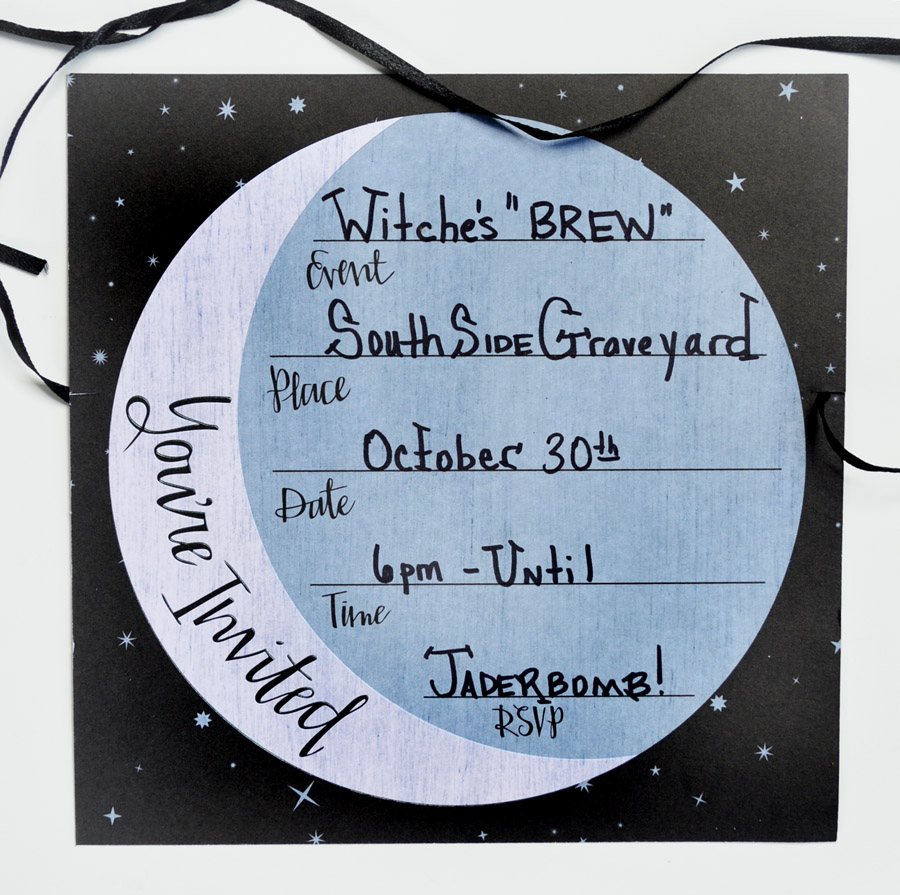 Witche's "BREW"
Event
South SIDE Graveyard
Place
October 30th
Date
6pm - Until
Time
JADERBOMB!
RSVP
You're Invited